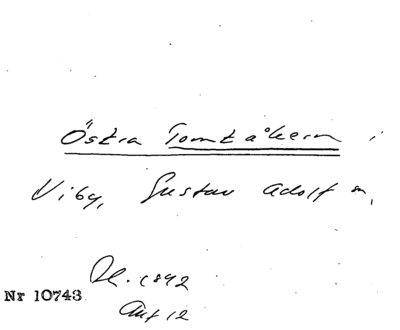 Östra Tomtåkern i
Viby, Gustav Adolf sn,
Dl. 1892
Nr 10743
Auf 12